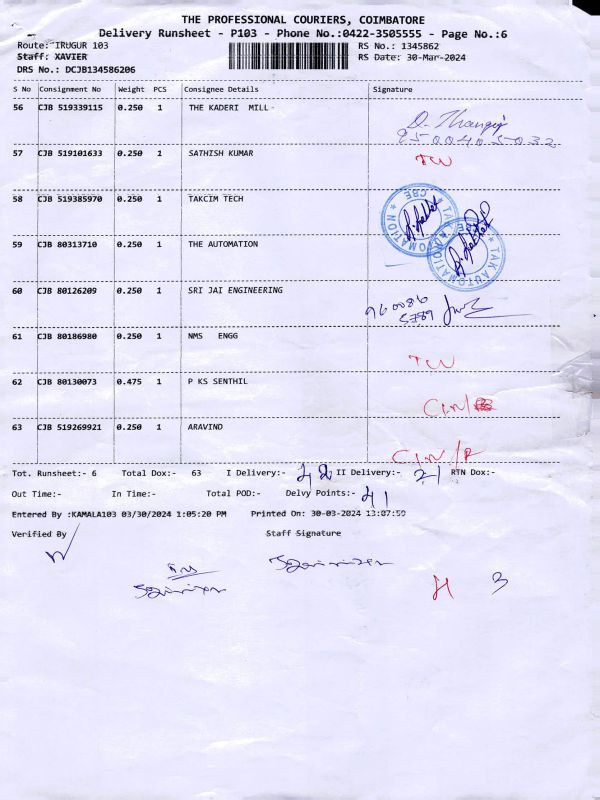 THE PROFESSIONAL COURIERS, COIMBATORE
Delivery Runsheet - P103 - Phone No.:0422-3505555 - Page No.:6
Route: IRUGUR 103 RS No.: 1345862
Staff: XAVIER RS Date: 30-Mar-2024
DRS No.: DCJB134586206
S No Consignment No Weight PCS Consignee Details Signature
56 CJB 519339115 0.250 1 THE KADERI MILL
9500405032
57 CJB 519101633 0.250 1 SATHISH KUMAR
58 CJB 519385970 0.250 1 TAKCIM TECH
TAK AUTOMATION CBE
59 CJB 80313710 0.250 1 THE AUTOMATION
TAK AUTOMATION
60 CJB 80126209 0.250 1 SRI JAI ENGINEERING
61 CJB 80186980 0.250 1 NMS ENGG
62 CJB 80130073 0.475 1 P KS SENTHIL
63 CJB 519269921 0.250 1 ARAVIND
Tot. Runsheet:- 6 Total Dox:- 63 I Delivery:- 42 II Delivery:- 21 RTN Dox:-
Out Time:- In Time:- Total POD:- Delvy Points:- 41
Entered By :KAMALA103 03/30/2024 1:05:20 PM Printed On: 30-03-2024 13:07:59
Verified By Staff Signature
3